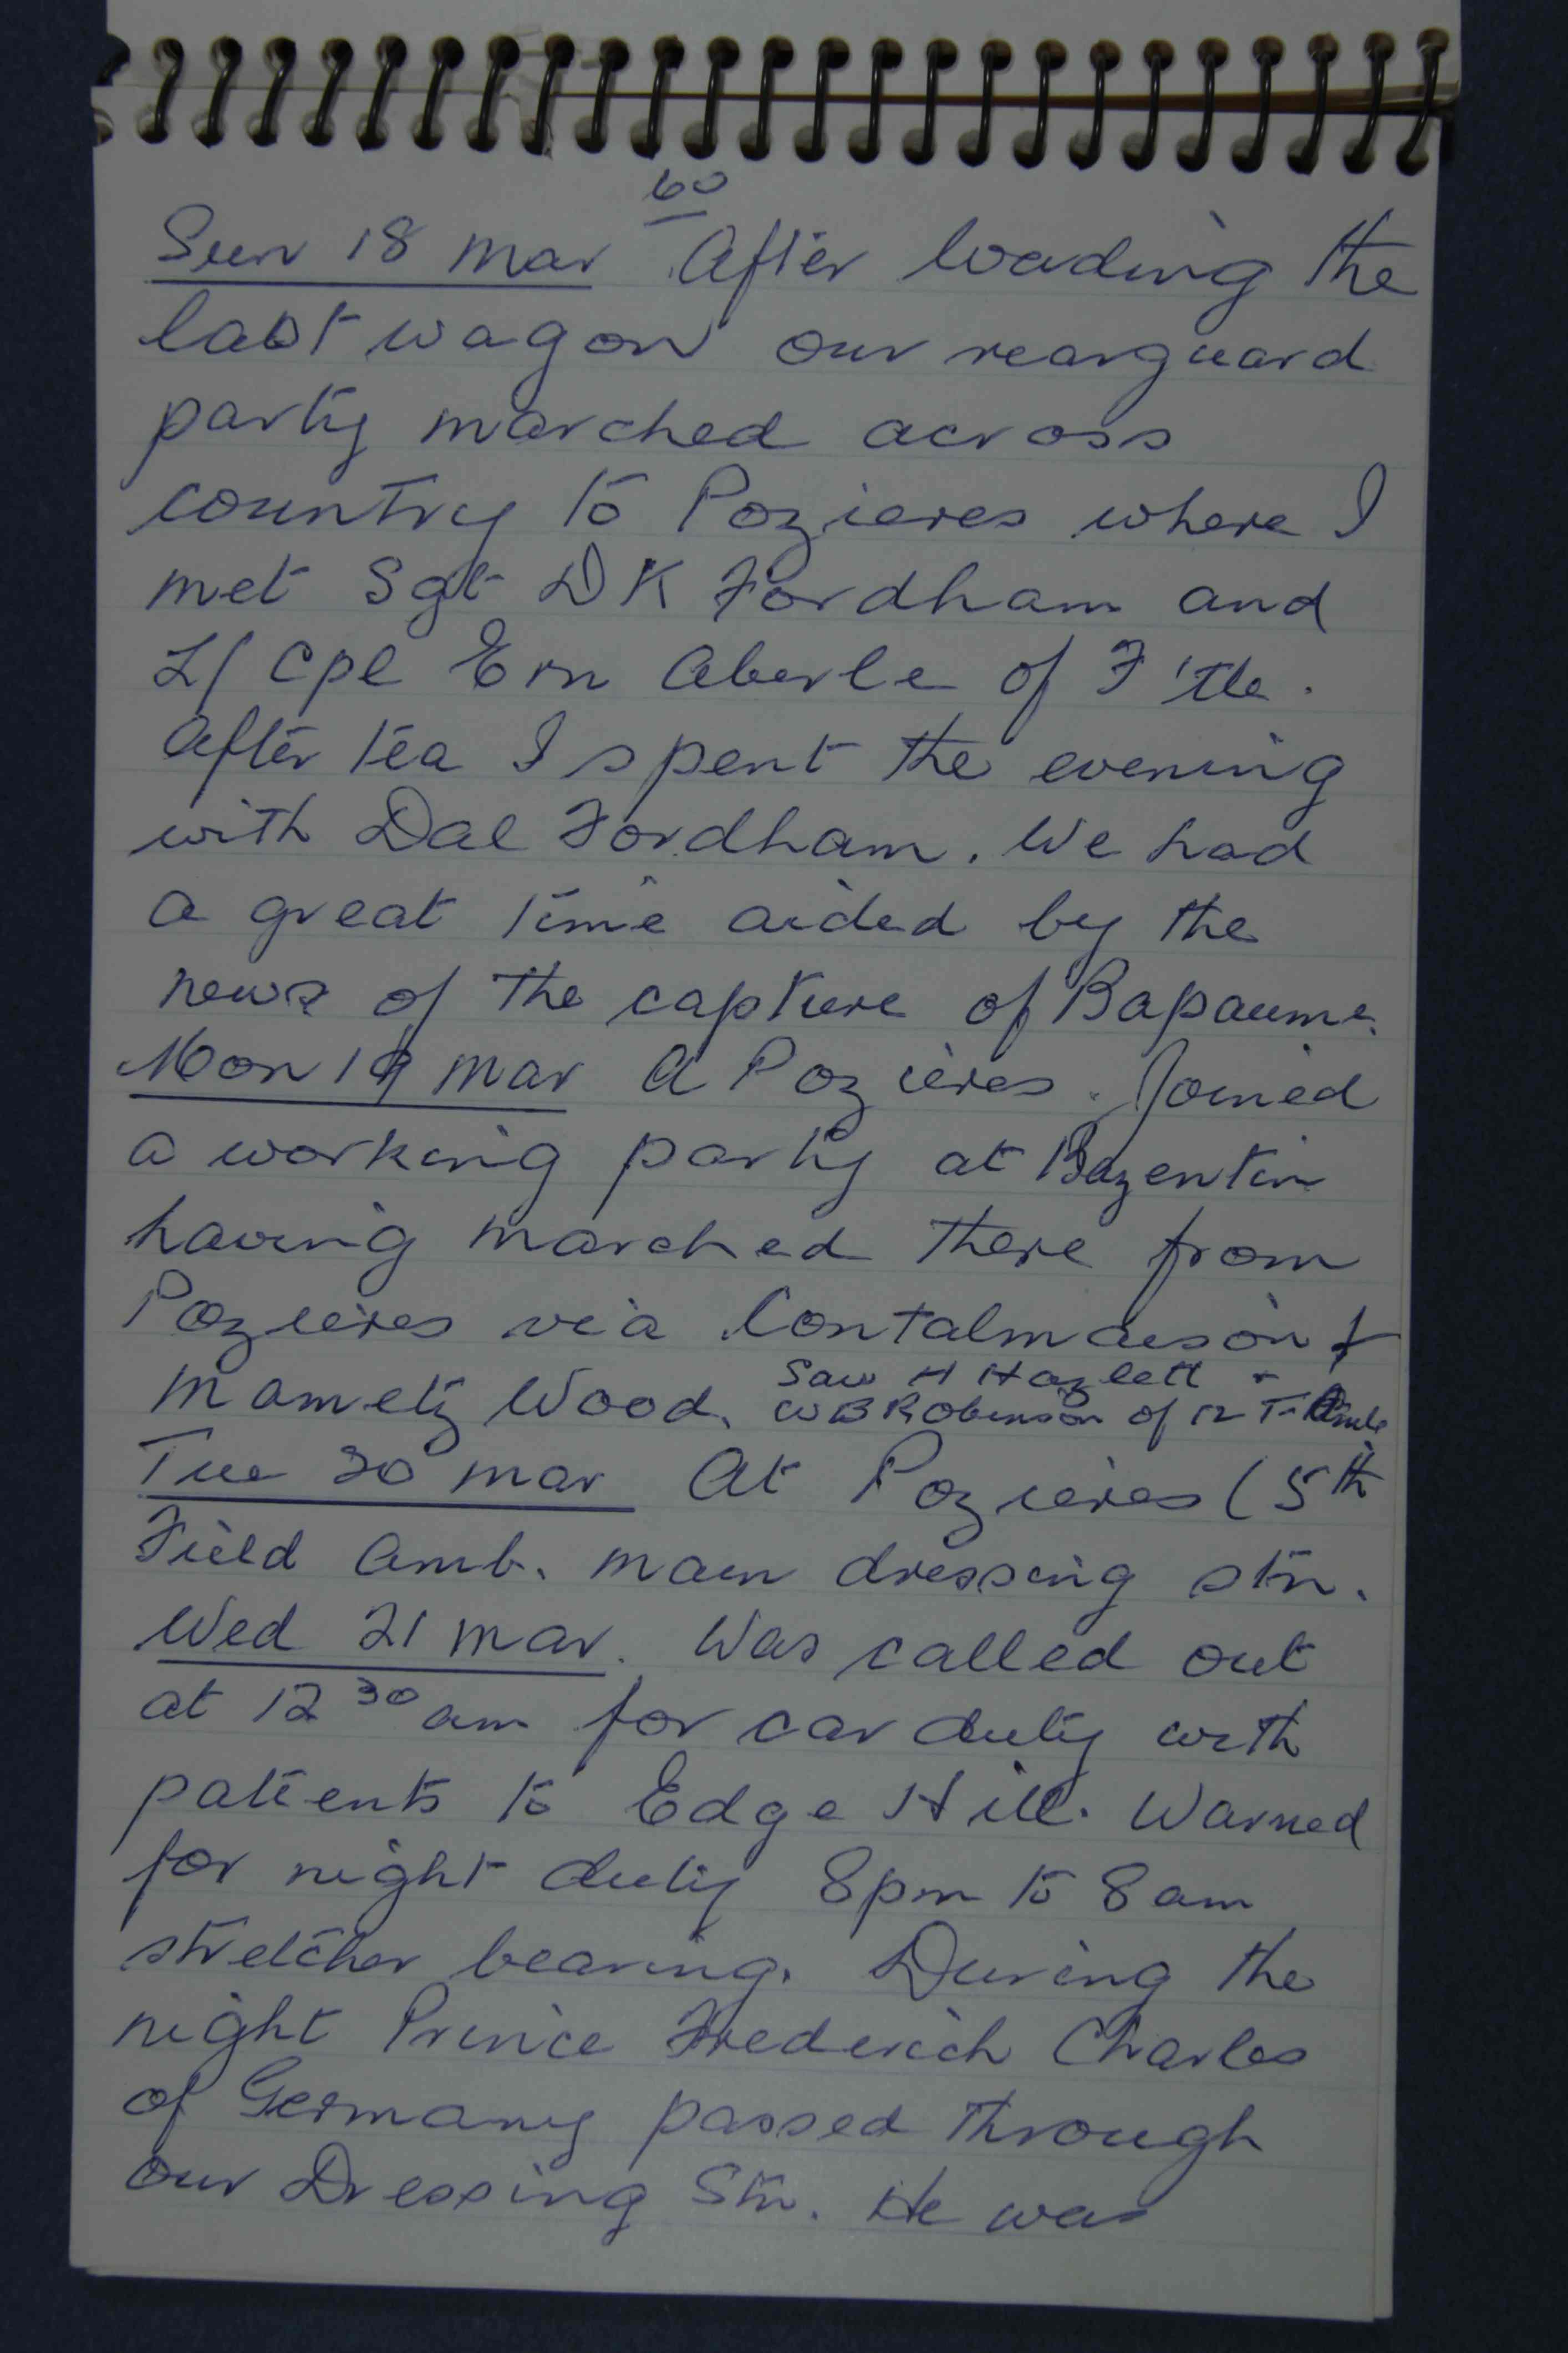 60
Sun 18 Mar After loading the
last wagon our rearguard
party marched across
country to Pozieres where I
met Sgt D K Fordham and
L/ Cpl Ern Aberle of F'tle.
After tea I spent the evening
with Dal Fordham. We had
a great time aided by the
news of the capture of Bapaume.
Mon 19 Mar A Pozieres. Joined
a working party at Bazentin
having marched there from
Pozieres via Contalmaison &
Mametz Wood. Saw H Hazlett +
WB Robinson of 12 F Amb
Tue 20 Mar At Pozieres (5th
Field Amb. main dressing stn.
Wed 21 Mar. Was called out
at 12 30 am for car duty with
patients to Edge Hill. Warned
for night duty 8pm to 8am
stretcher bearing. During the
night Prince Frederich Charles
of Germany passed through
our Dressing Stn. He was